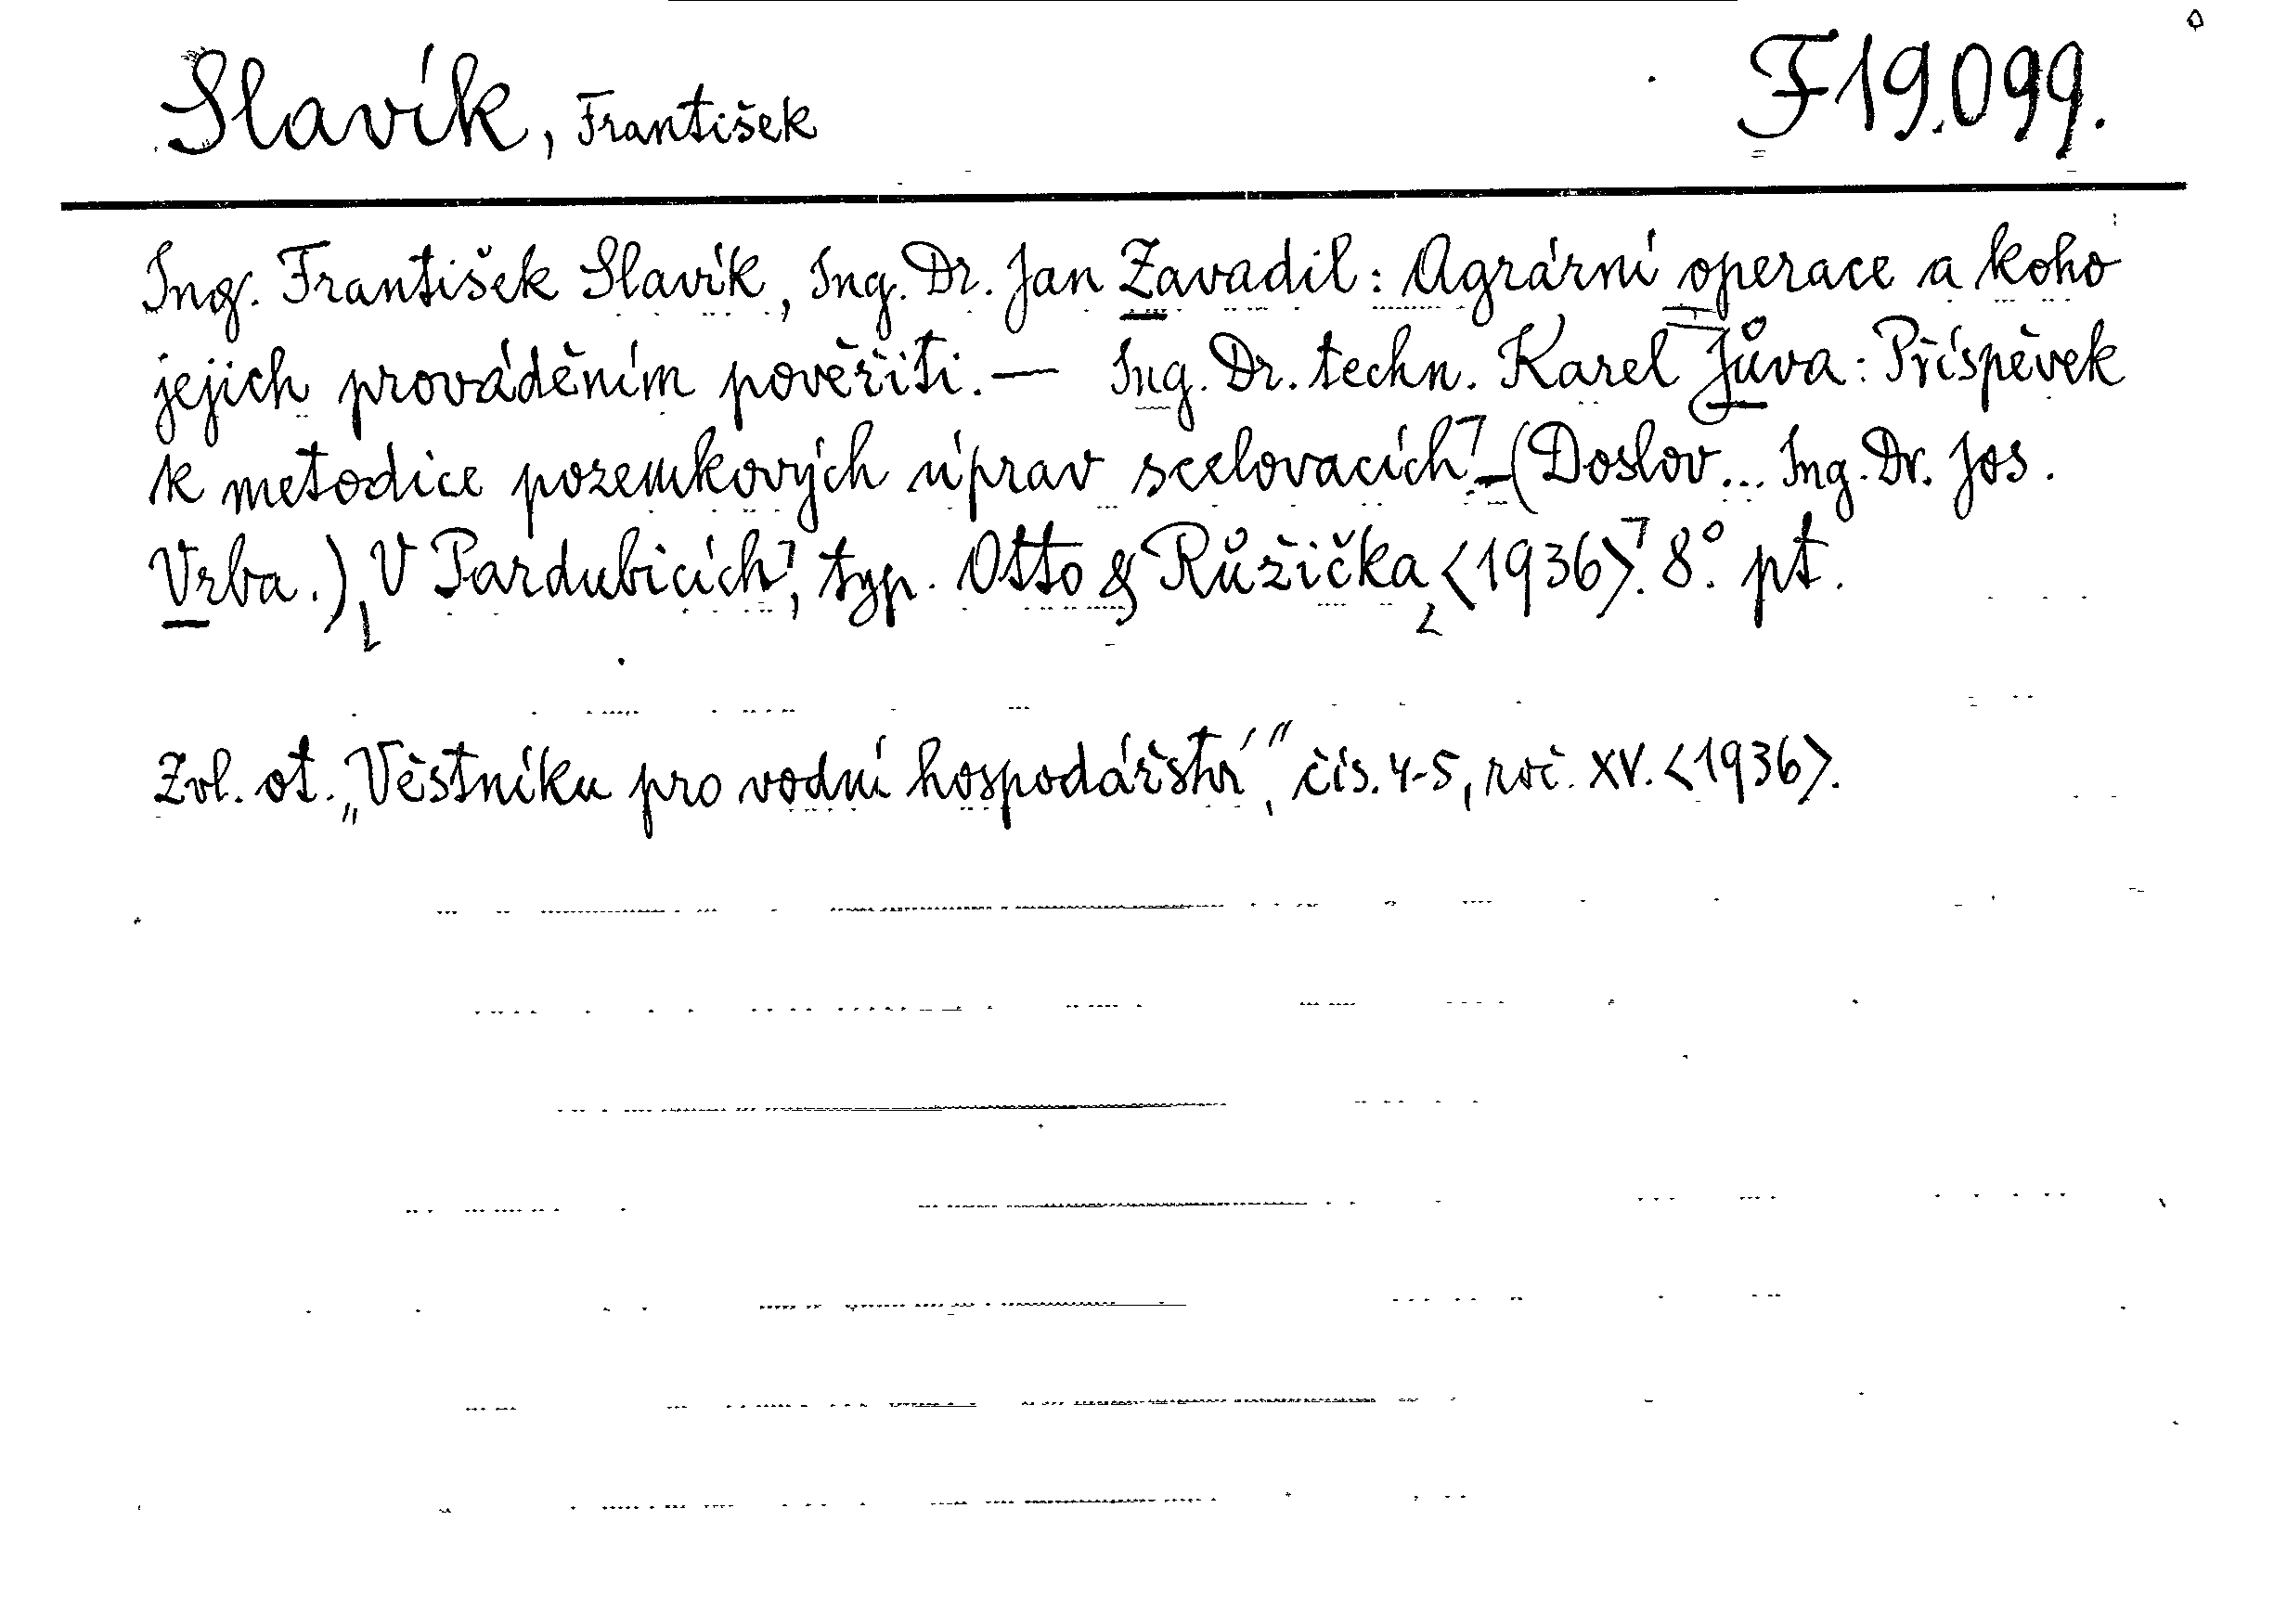 Slavík, František
F 19.099.
Ing. František Slavík, Ing. Dr. Jan Zavadil: Agrární operace a koho
jejich prováděním pověřiti. — Ing. Dr. techn. Karel Jůva: Příspěvek
k metodice pozemkových úprav scelovacích. – (Doslov... Ing. Dr. Jos.
Vrba.) V Pardubicích, typ. Otto & Růžička, <1936>. 8°. pt.
Zvl. ot. „Věstníku pro vodní hospodářství", čís. 4-5, roč. XV. <1936>.